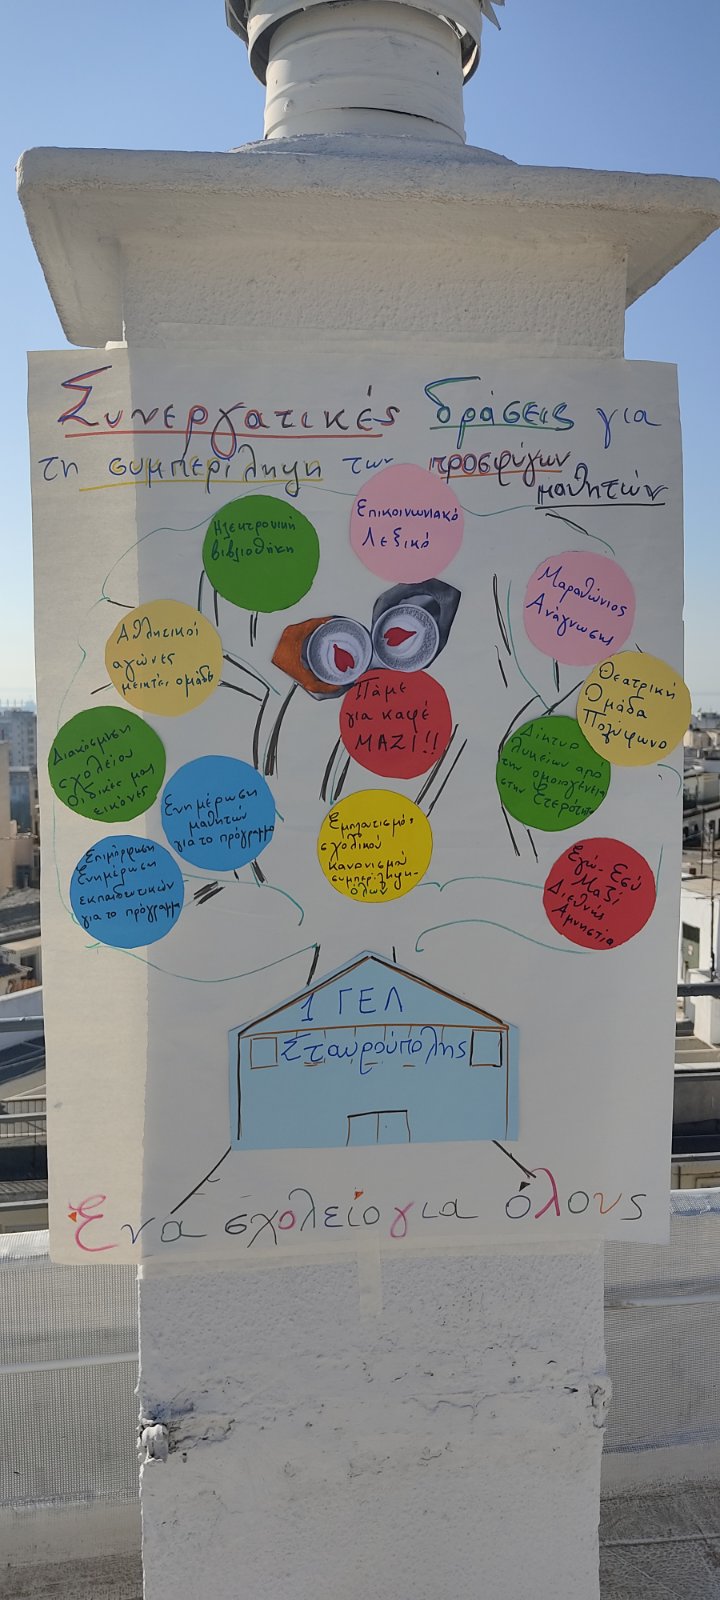 Συνεργατικές δράσεις για
τη συμπερίληψη των προσφύγων
μαθητών
Ηλεκτρονική
βιβλιοθήκη
Επικοινωνιακό
Λεξικό
Μαραθώνιος
Ανάγνωσης
Αθλητικοί
αγώνες
μεικτές ομάδες
Θεατρική
Ομάδα
Πολύφωνο
Πάμε
για καφέ
ΜΑΖΙ!!
Διακόσμηση
σχολείου
Οι δικές μας
εικόνες
Δίκτυο
λυκείων από
την ομοιογένεια
στην Ετερότητα
Ενημέρωση
μαθητών
για το πρόγραμμα
Εμπλουτισμός
σχολικού
κανονισμού
συμπερίληψη-
όλων
Επιμόρφωση
Ενημέρωση
εκπαιδευτικών
για το πρόγραμμα
Εγώ-Εσύ
Μαζί
Διεθνής
Αμνηστία
1 ΓΕΛ
Σταυρούπολης
Ένα σχολείο για όλους